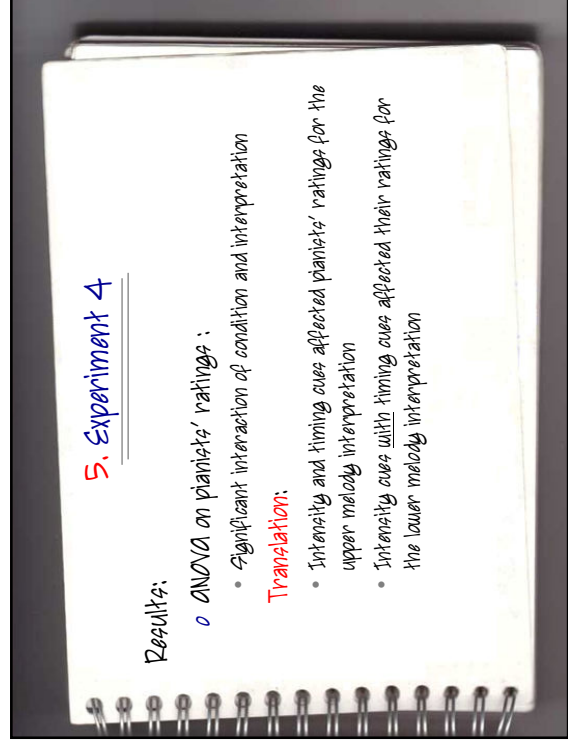 5. Experiment 4
Results:
o ANOVA on pianists' ratings :
• Significant interaction of condition and interpretation
Translation:
• Intensity and timing cues affected pianists' ratings for the
upper melody interpretation
• Intensity cues with timing cues affected their ratings for
the lower melody interpretation